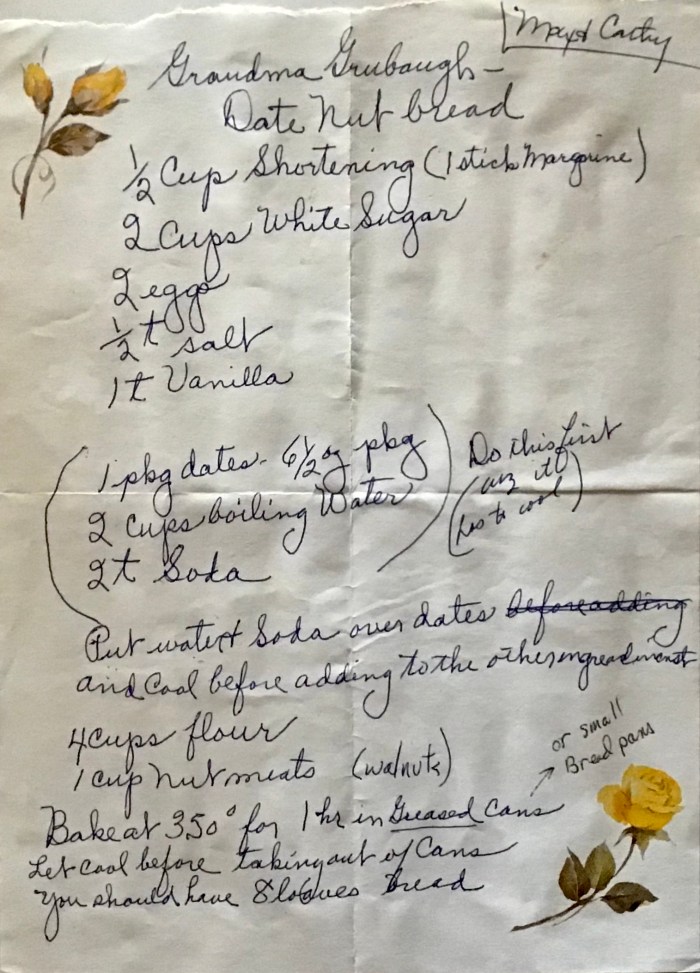 Cathy
Grandma Grubaugh –
Date Nut bread
½ Cup Shortening (1 stick Margarine)
2 Cups White Sugar
2 eggs
½ t salt
1 t Vanilla
1 pkg dates - 6½ oz pkg
2 cups boiling Water
2 t Soda
Do this first
(cuz it
has to cool)
Put water + Soda over dates before adding
and Cool before adding to the other ingredients
4 cups flour
1 cup Nut meats (walnuts)
or small
Bread pans
Bake at 350° for 1 hr in Greased Cans
Let cool before taking out of Cans
You should have 8 loaves bread